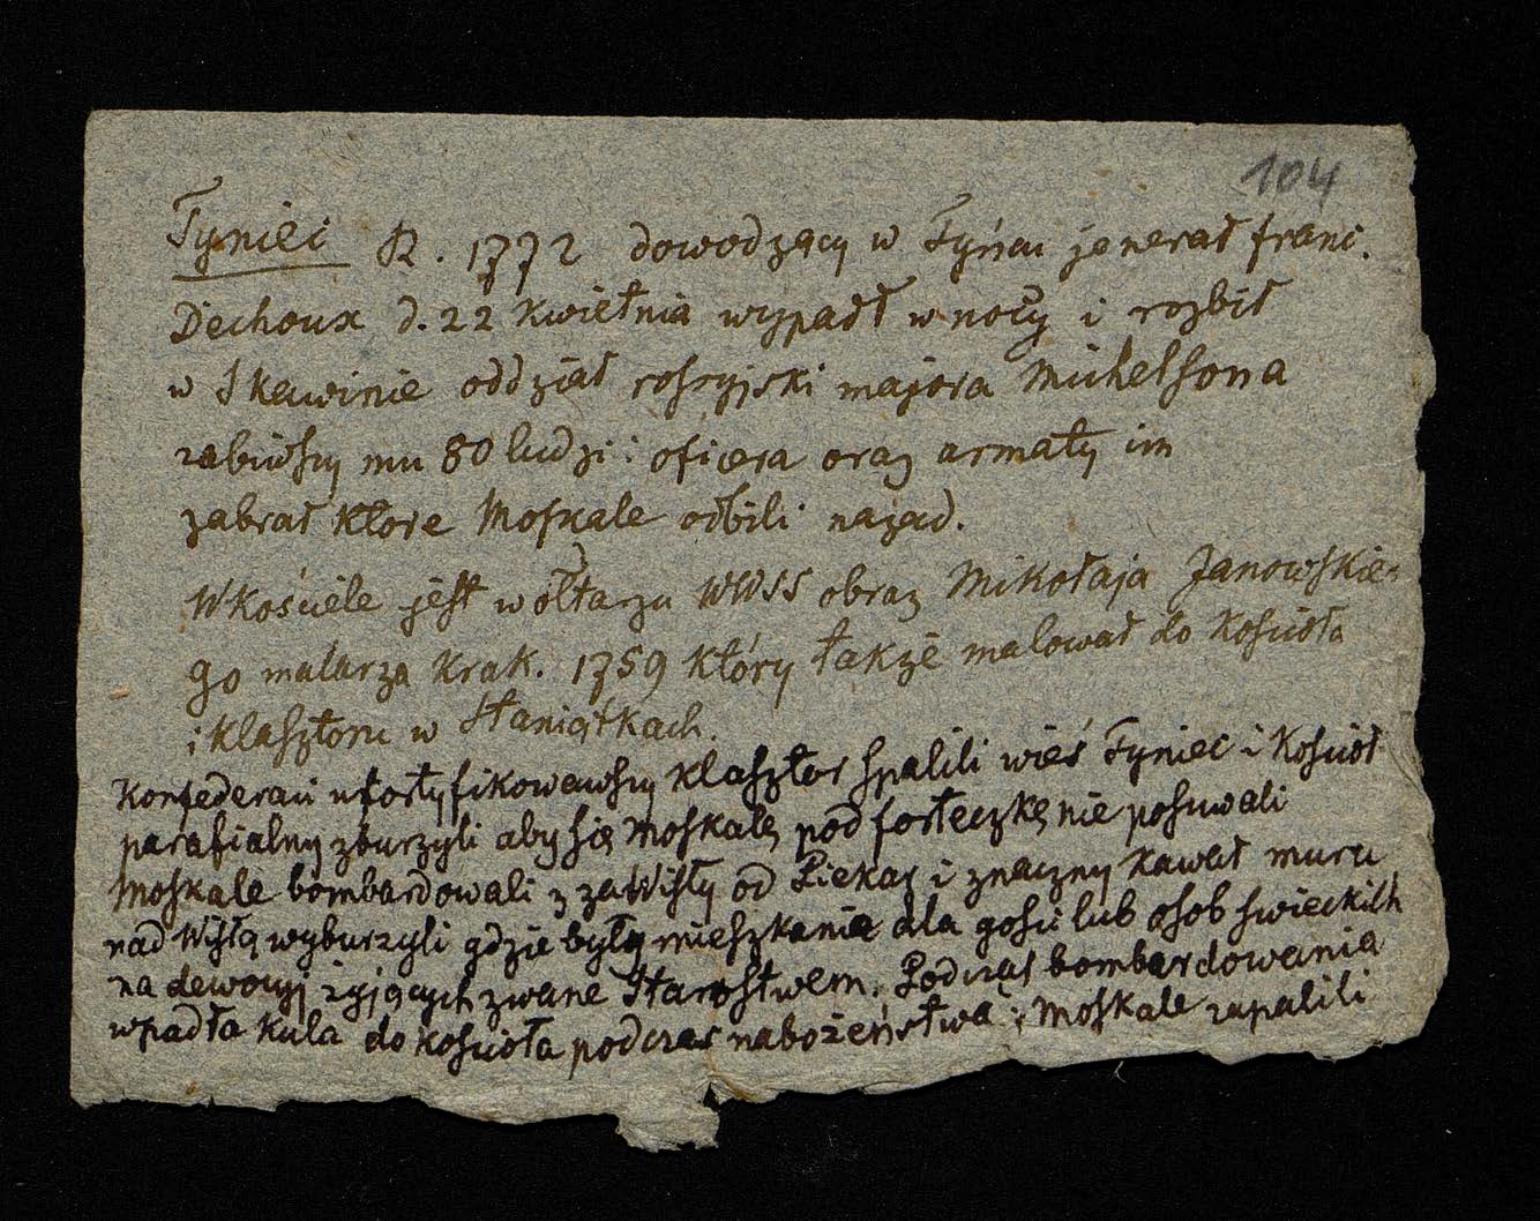 104
Tyniec R. 1772 dowodzący w Tyńcu jenerał franc.
Dechoux d. 22 kwietnia wypadł w nocy i rozbił
w Skawinie oddział rossyjski majora Michelsona
zabiwszy mu 80 ludzi i oficera oraz armaty im
zabrał które Moskale odbili nazad.
W kościele jest w ołtarzu WWSS obraz Mikołaja Janowskie-
go malarza krak. 1759 który także malował do kościoła
i klasztoru w Staniątkach.
Konfederaci ufortyfikowawszy klasztor spalili wieś Tyniec i kościół
parafialny zburzyli aby się Moskale pod forteczkę nie posuwali
Moskale bombardowali z za Wisły od Piekar i znaczny kawał muru
nad Wisłą wyburzyli gdzie były mieszkania dla gości lub osob swieckich
na dewocyj żyjących zwane Starostwem. Podczas bombardowania
wpadła kula do kościoła podczas nabożeństwa i Moskale zapalili